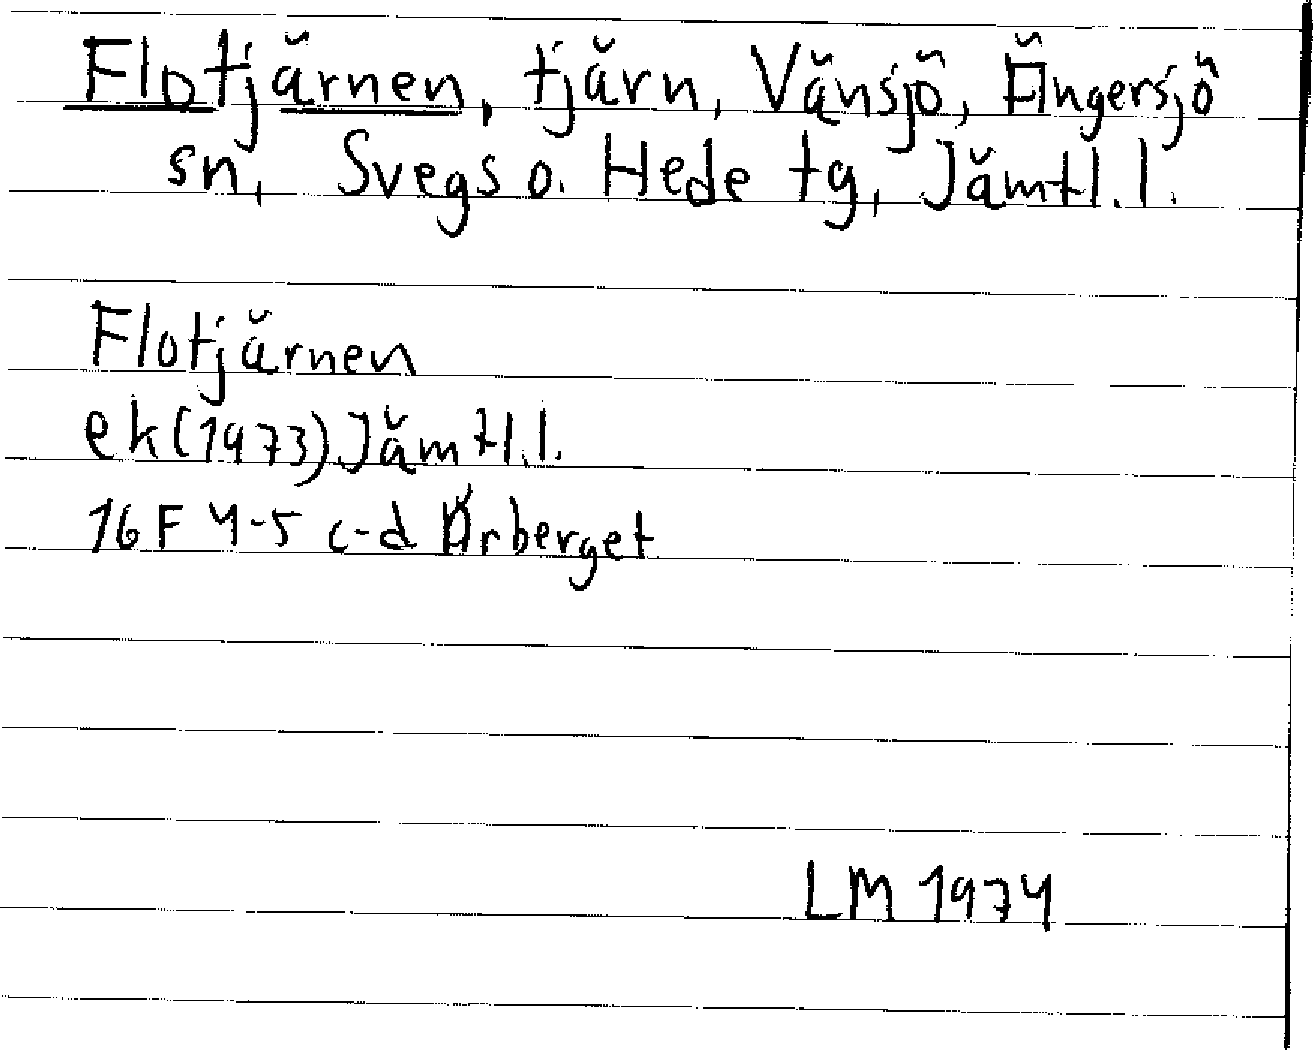 Flotjärnen, tjärn, Vänsjö, Ängersjö
sn, Svegs o. Hede tg, Jämtl.l.
Flotjärnen
ek(1973)Jämtl.l.
16F 4-5 c-d Örberget
LM 1974